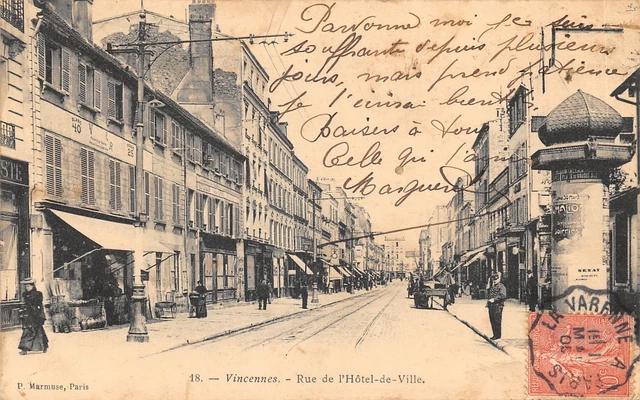 Pardonne moi je suis
souffrante depuis plusieurs
jours, mais prend patience
je t'écrirai bientôt
Baisers à tous
Celle qui t'aime
Marguerite
40
SENAT
LA VARENNE
PARIS
MAI
04
10
18. — Vincennes. - Rue de l'Hôtel-de-Ville.
P. Marmuse, Paris